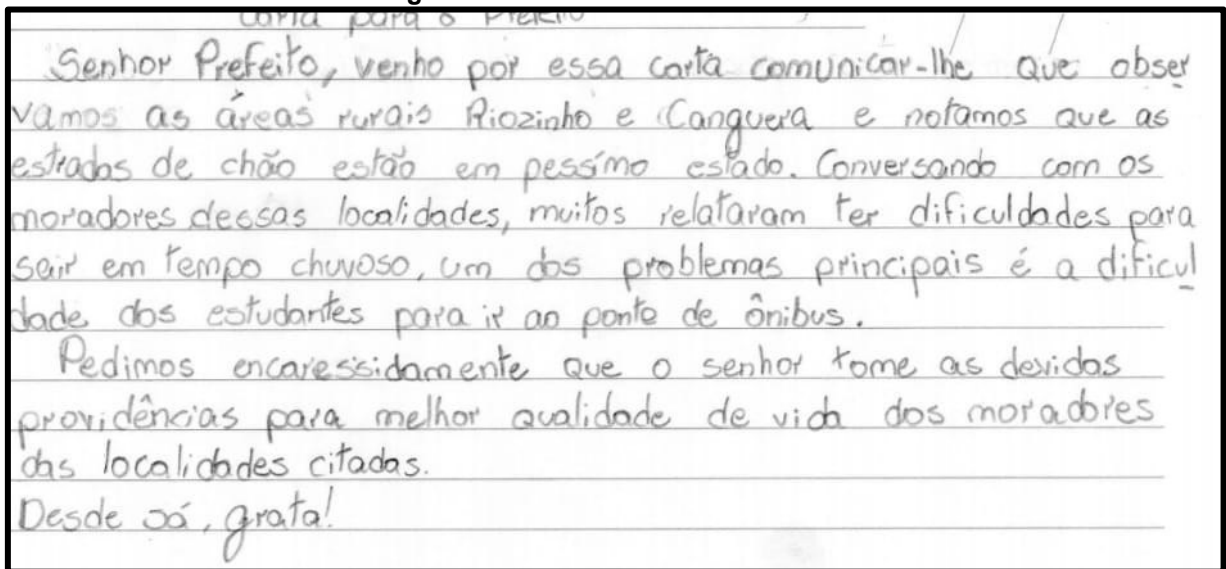 Carta para o Prefeito
Senhor Prefeito, venho por essa carta comunicar-lhe que obser
vamos as áreas rurais Riozinho e Canguera e notamos que as
estradas de chão estão em pessímo estado. Conversando com os
moradores dessas localidades, muitos relataram ter dificuldades para
sair em tempo chuvoso, um dos problemas principais é a dificul
dade dos estudantes para ir ao ponto de ônibus.
Pedimos encaressidamente que o senhor tome as devidas
providências para melhor qualidade de vida dos moradores
das localidades citadas.
Desde já, grata!